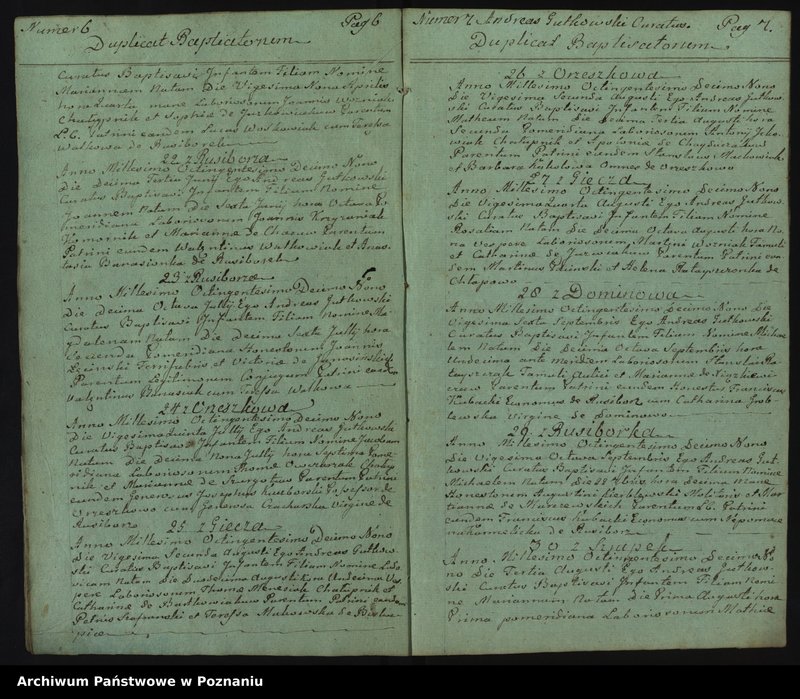 Numer 6 Pag 6
Duplicat Baptisatorum
Curatus Baptisavi Infantem Filiam Nomine
Mariannam Natam Die Vigesima Nona Aprilis
hora quarta mane Laboriosorum Joannis Wozniak
Chałupnik et Sophia de Parentum
L.C. Patrini eandem Lucas Walkowiak cum Teressa
Walkowa de Rusiborek
22 z Rusibora
Anno Millesimo Octingentesimo Decimo Nono
Die Decima Tertia Junii Ego Andreas Gutkowski
Curatus Baptisavi Infantem Filium Nomine
Joannem Natum Die Sexta Junij hora Octava Po
meridiana Laboriosorum Joannis Krzyzaniak
Komornik et Marianna de Parentum
Patrini eundem Walentinus Walkowiak et Anas
tasia Banasionka de Rusiborek
23 z Rusiborza
Anno Millesimo Octingentesimo Decimo Nono
Die Decima Octava Jullij Ego Andreas Gutkowski
Curatus Baptisavi Infantem Filiam Nomine Ma
gdalenam Natam Die Decima Sexta Jullij hora
Secunda Pomeridiana Honestorum Joannis
et Victoria de
Parentum Legitimorum Conjugum Patrini eandem
Valentinus Banasiak cum Teressa Walkowa
24 z Orzeszkowa
Anno Millesimo Octingentesimo Decimo Nono
Die Vigesima Quinta Jullij Ego Andreas Gutkowski
Curatus Baptisavi Infantem Filium Nomine Jacobum
Natum Die Decima Nona Jullij hora Septima Pome
ridiana Laboriosorum Thoma Owczarzak Chałup
nik et Marianna de Parentum Patrini
eundem Generosus Josephus Rusiborski Possessor de
Orzeszkowo cum Generosa Virgine de
Rusiborz
25 z Giecza
Anno Millesimo Octingentesimo Decimo Nono
Die Vigesima Secunda Augusti Ego Andreas Gutkow
ski Curatus Baptisavi Infantem Filiam Nomine Ludo
vicam Natam Die Duodecima Augusti hora Undecima Ves
pere Laboriosorum Thoma Chałupnik et
Catharina de Bartkowiakow Parentum Patrini eandem
Petrus Szafranski et Teressa Makowska de

Numer 7 Andreas Gutkowski Curatus. Pag 7.
Duplicat Baptisatorum
26 z Orzeszkowa
Anno Millesimo Octingentesimo Decimo Nono
Die Vigesima Secunda Augusti Ego Andreas Gutkow
ski Curatus Baptisavi Infantem Filium Nomine
Matheum Natum Die Decima Tertia Augusti hora
Secunda Pomeridiana Laboriosorum Antonij
Chałupnik et Apolonia de
Parentum Patrini eundem Stanislaus Machowiak
et Barbara Omnes de Orzeszkowo
27 z Giecza
Anno Millesimo Octingentesimo Decimo Nono
Die Vigesima Quarta Augusti Ego Andreas Gutkow
ski Curatus Baptisavi Infantem Filiam Nomine
Rosaliam Natam Die Decima Octava Augusti hora No
na Vespere Laboriosorum Martini Wozniak Famuli
et Catharina de Parentum Patrini ean
dem Martinus et Helena Ratayszczonka de
Chłapowo
28 z Dominowa
Anno Millesimo Octingentesimo Decimo Nono Die
Vigesima Sexta Septembris Ego Andreas Gutkowski
Curatus Baptisavi Infantem Filium Nomine Michae
lem Natum Die Decima Octava Septembris hora
Undecima ante meridiem Laboriosorum Stanislai Ra
tayszczak Famuli Aulici et Marianna de
Parentum Patrini eundem Honestus Franciscus
Kubacki Economus de Rusiborz cum Catharina Grob
lewska Virgine de Dominowo
29 z Rusiborka
Anno Millesimo Octingentesimo Decimo Nono
Die Vigesima Octava Septembris Ego Andreas Gut
kowski Curatus Baptisavi Infantem Filium Nomine
Michaelem Natum Die 22 7bris hora Decima Mane
Honestorum Augustini et Mar
ianna de Parentum L.C. Patrini
eundem Franciscus Kubacki Economus cum Nepomuce
na de Rusiborz
30 z Lipapek
Anno Millesimo Octingentesimo Decimo No
no Die Tertia Augusti Ego Andreas Gutkow
ski Curatus Baptisavi Infantem Filiam Nomi
ne Mariannam Natam Die Prima Augusti hora
Prima pomeridiana Laboriosorum Mathiae
Archiwum Państwowe w Poznaniu